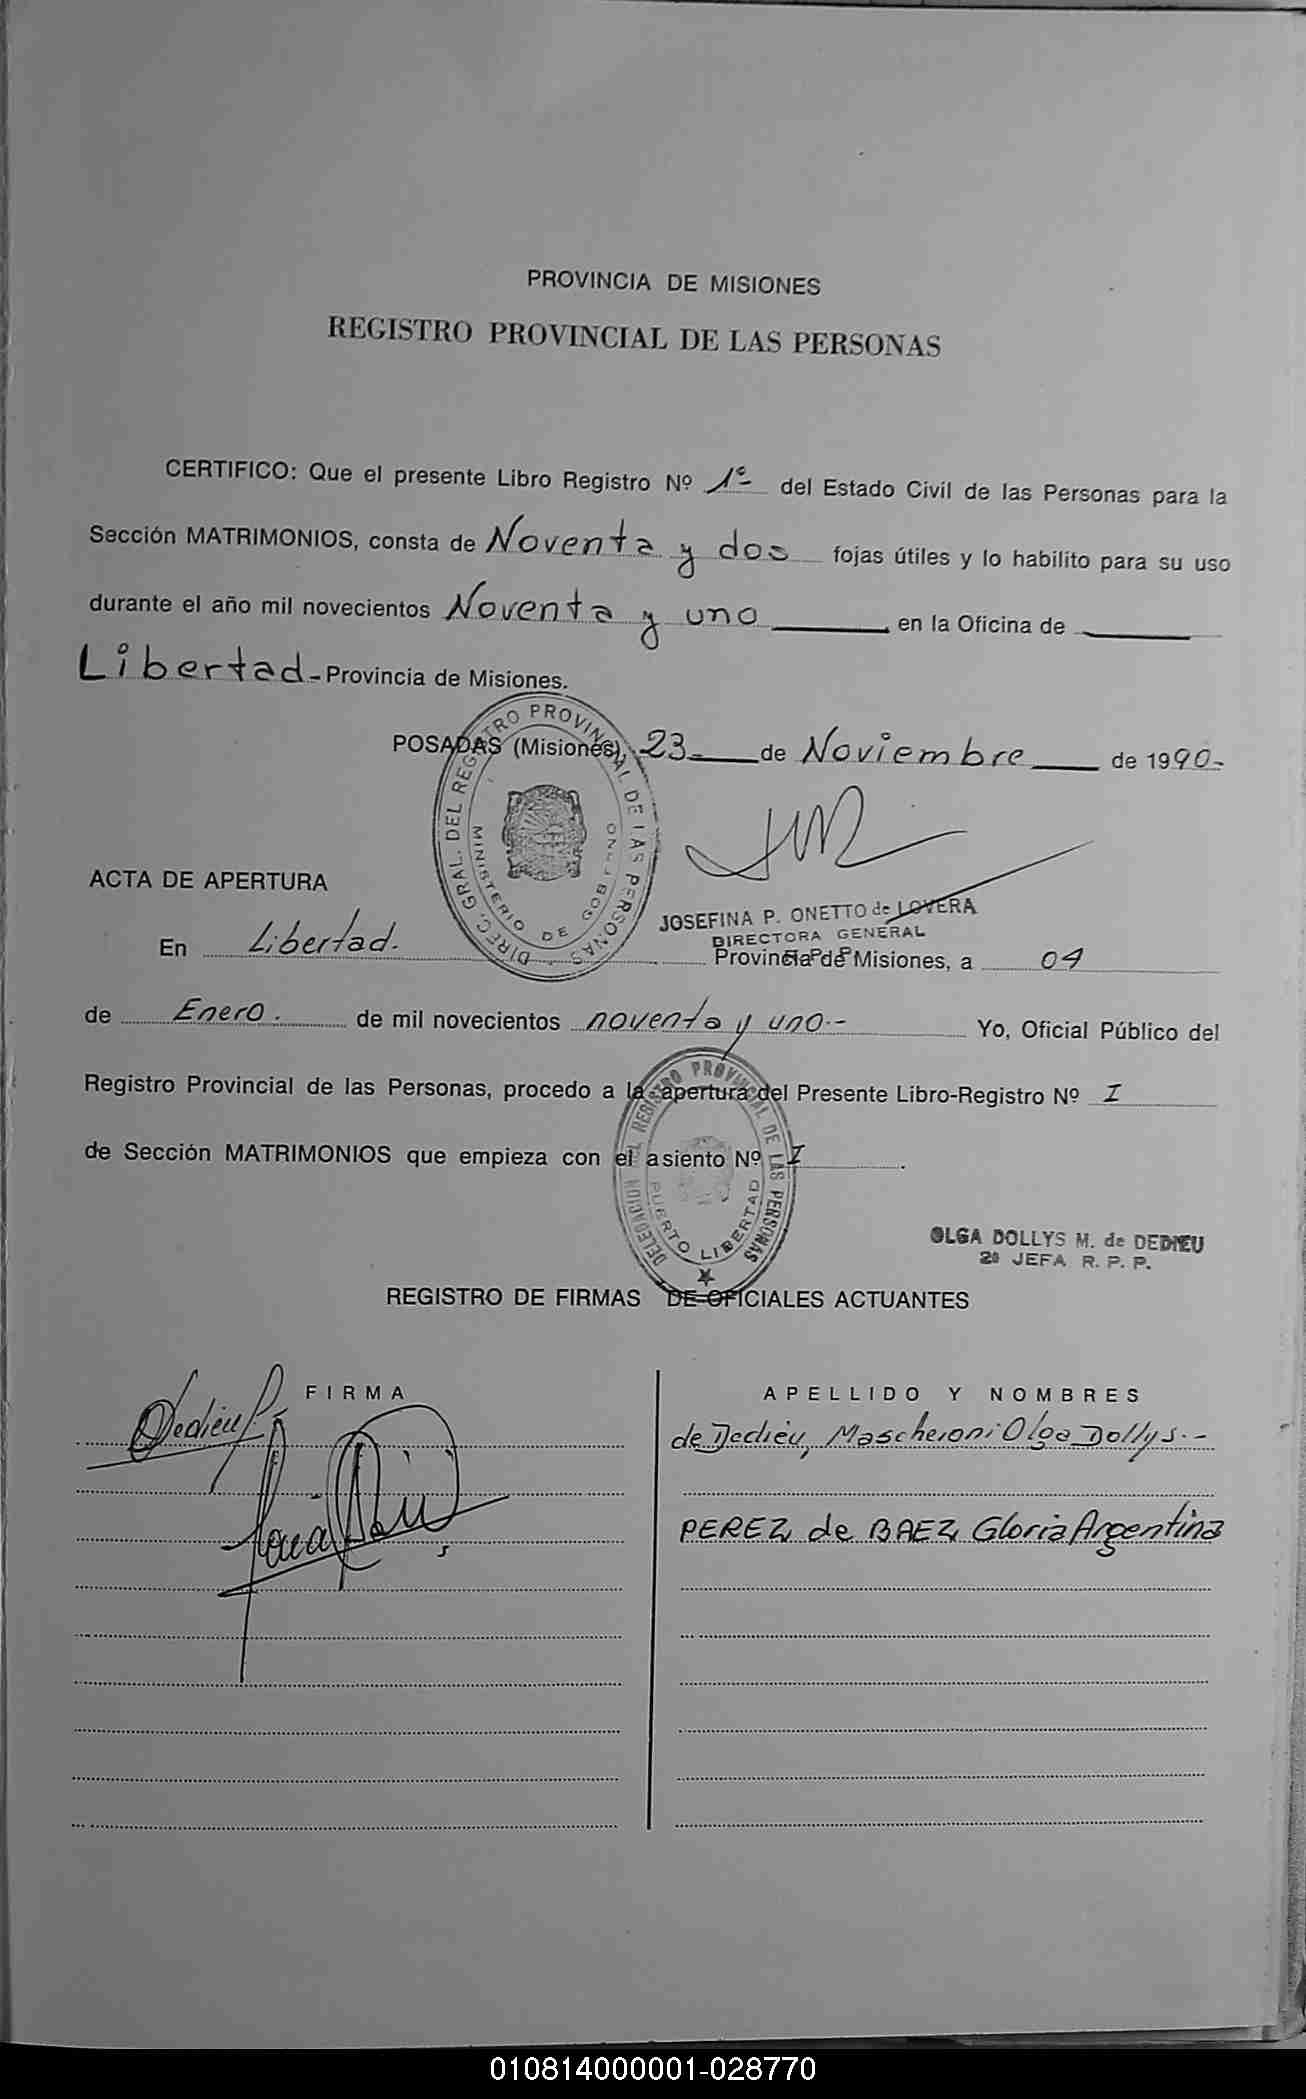 PROVINCIA DE MISIONES
REGISTRO PROVINCIAL DE LAS PERSONAS
CERTIFICO: Que el presente Libro Registro Nº 1º- del Estado Civil de las Personas para la
Sección MATRIMONIOS, consta de Noventa y dos fojas útiles y lo habilito para su uso
durante el año mil novecientos Noventa y uno en la Oficina de
Libertad- Provincia de Misiones.
POSADAS (Misiones), 23 de Noviembre de 1990-
DIREC. GRAL. DEL REGISTRO PROVINCIAL DE LAS PERSONAS
MINISTERIO DE GOBIERNO
JOSEFINA P. ONETTO de LOVERA
DIRECTORA GENERAL
R. P. P.
ACTA DE APERTURA
En Libertad. Provincia de Misiones, a 04
de Enero. de mil novecientos noventa y uno.- Yo, Oficial Público del
Registro Provincial de las Personas, procedo a la apertura del Presente Libro-Registro Nº I
de Sección MATRIMONIOS que empieza con el asiento Nº I.
DELEGACION DEL REGISTRO PROVINCIAL DE LAS PERSONAS
PUERTO LIBERTAD
OLGA DOLLYS M. de DEDIEU
2º JEFA R. P. P.
REGISTRO DE FIRMAS DE OFICIALES ACTUANTES
FIRMA APELLIDO Y NOMBRES
Dedieu de Dedieu, Mascheroni Olga Dollys.-
PEREZ de BAEZ Gloria Argentina
010814000001-028770